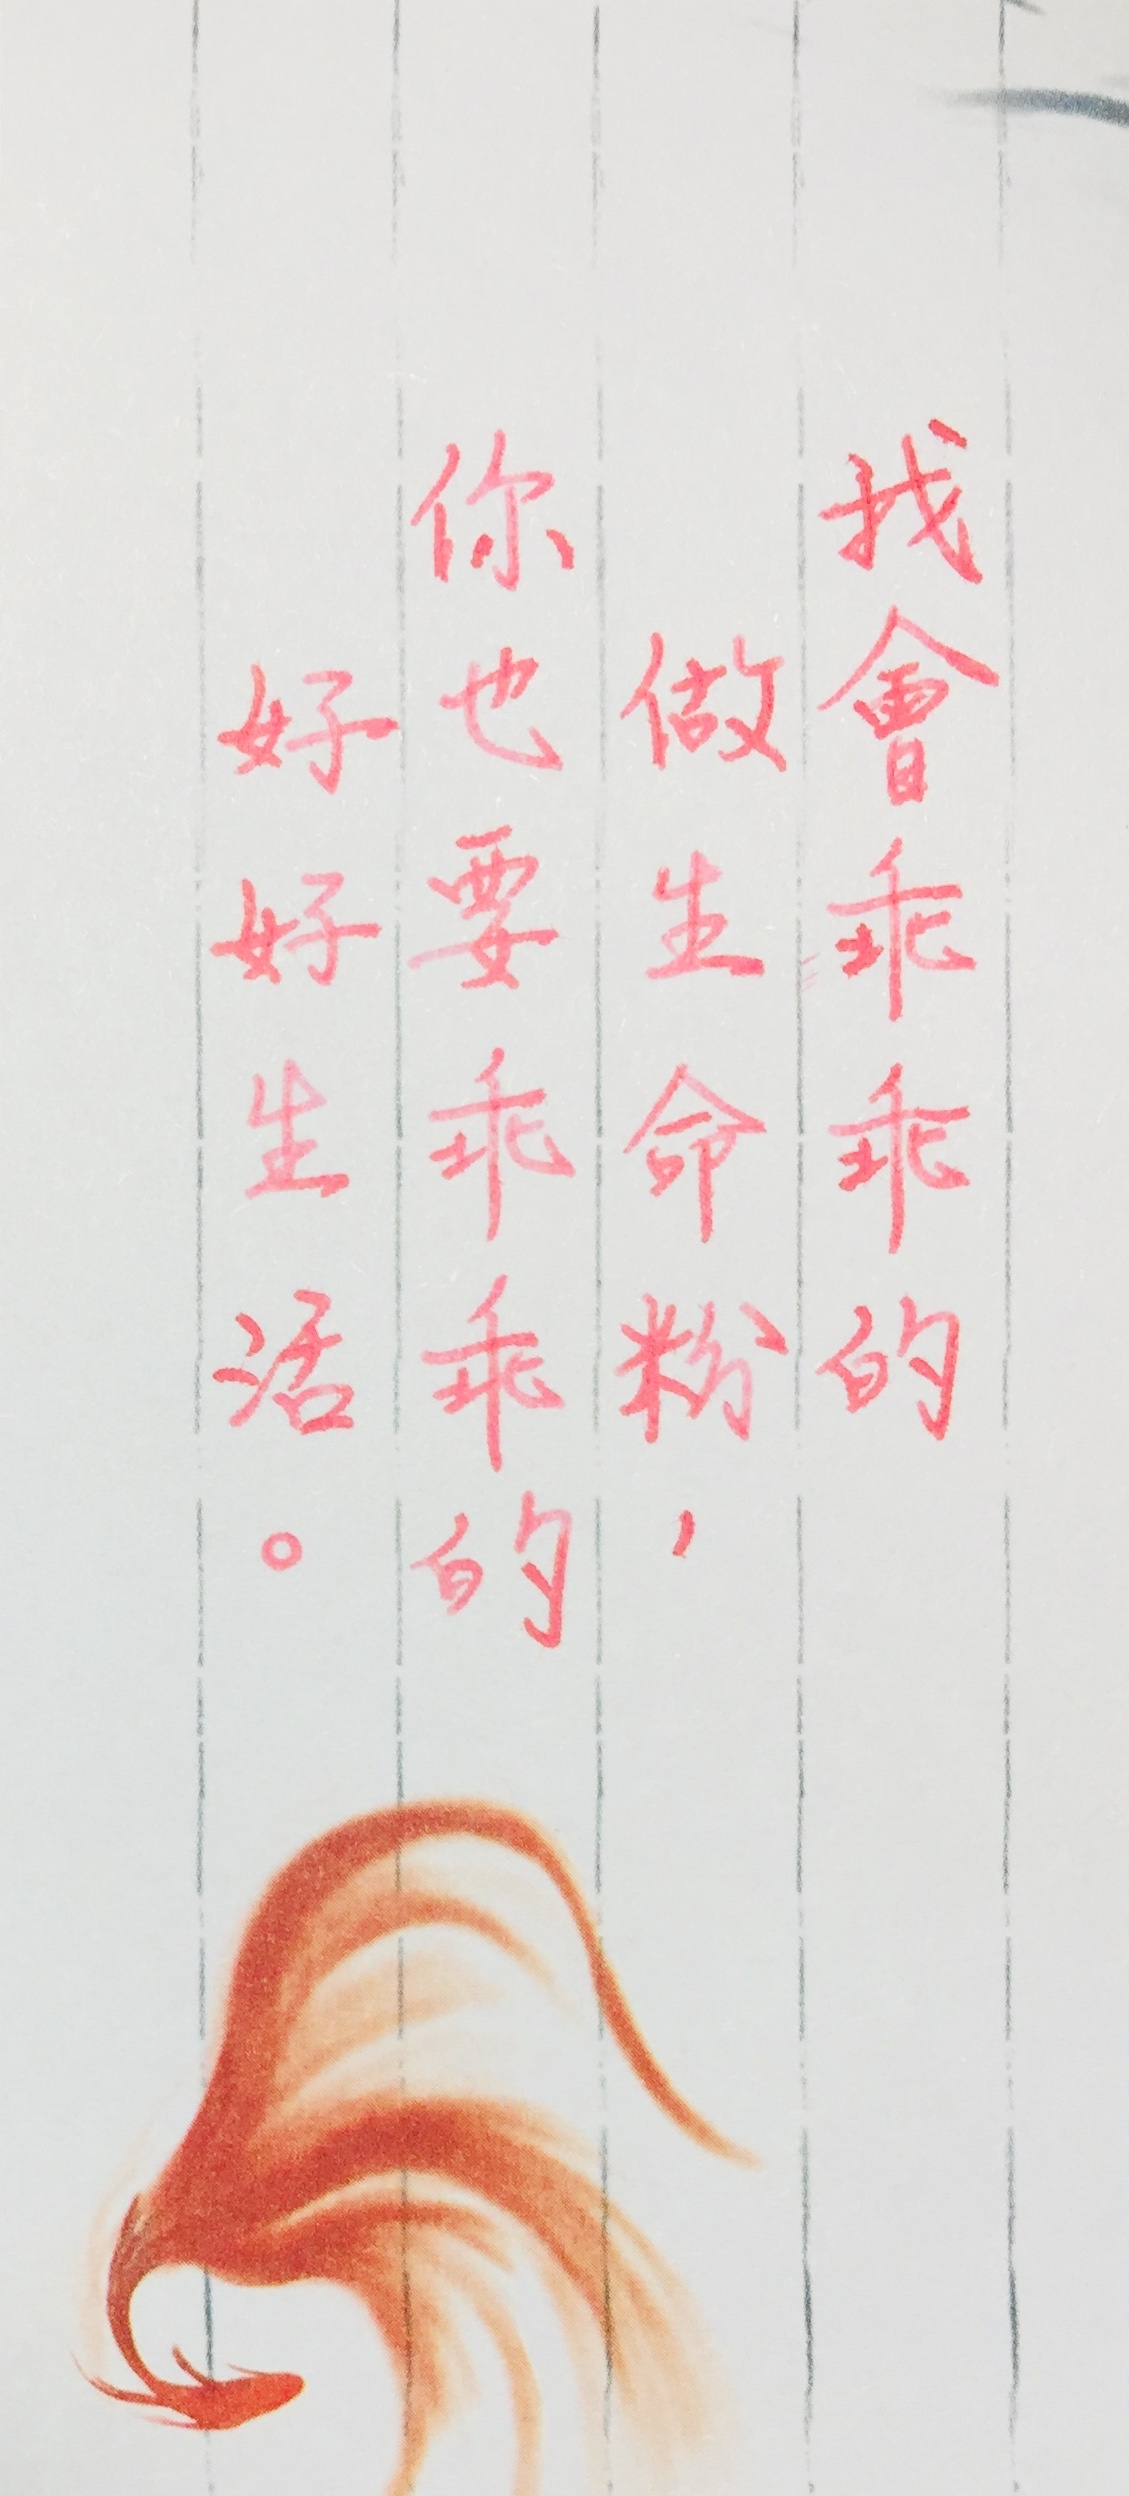 我會乖乖的
做生命粉，
你也要乖乖的
好好生活。